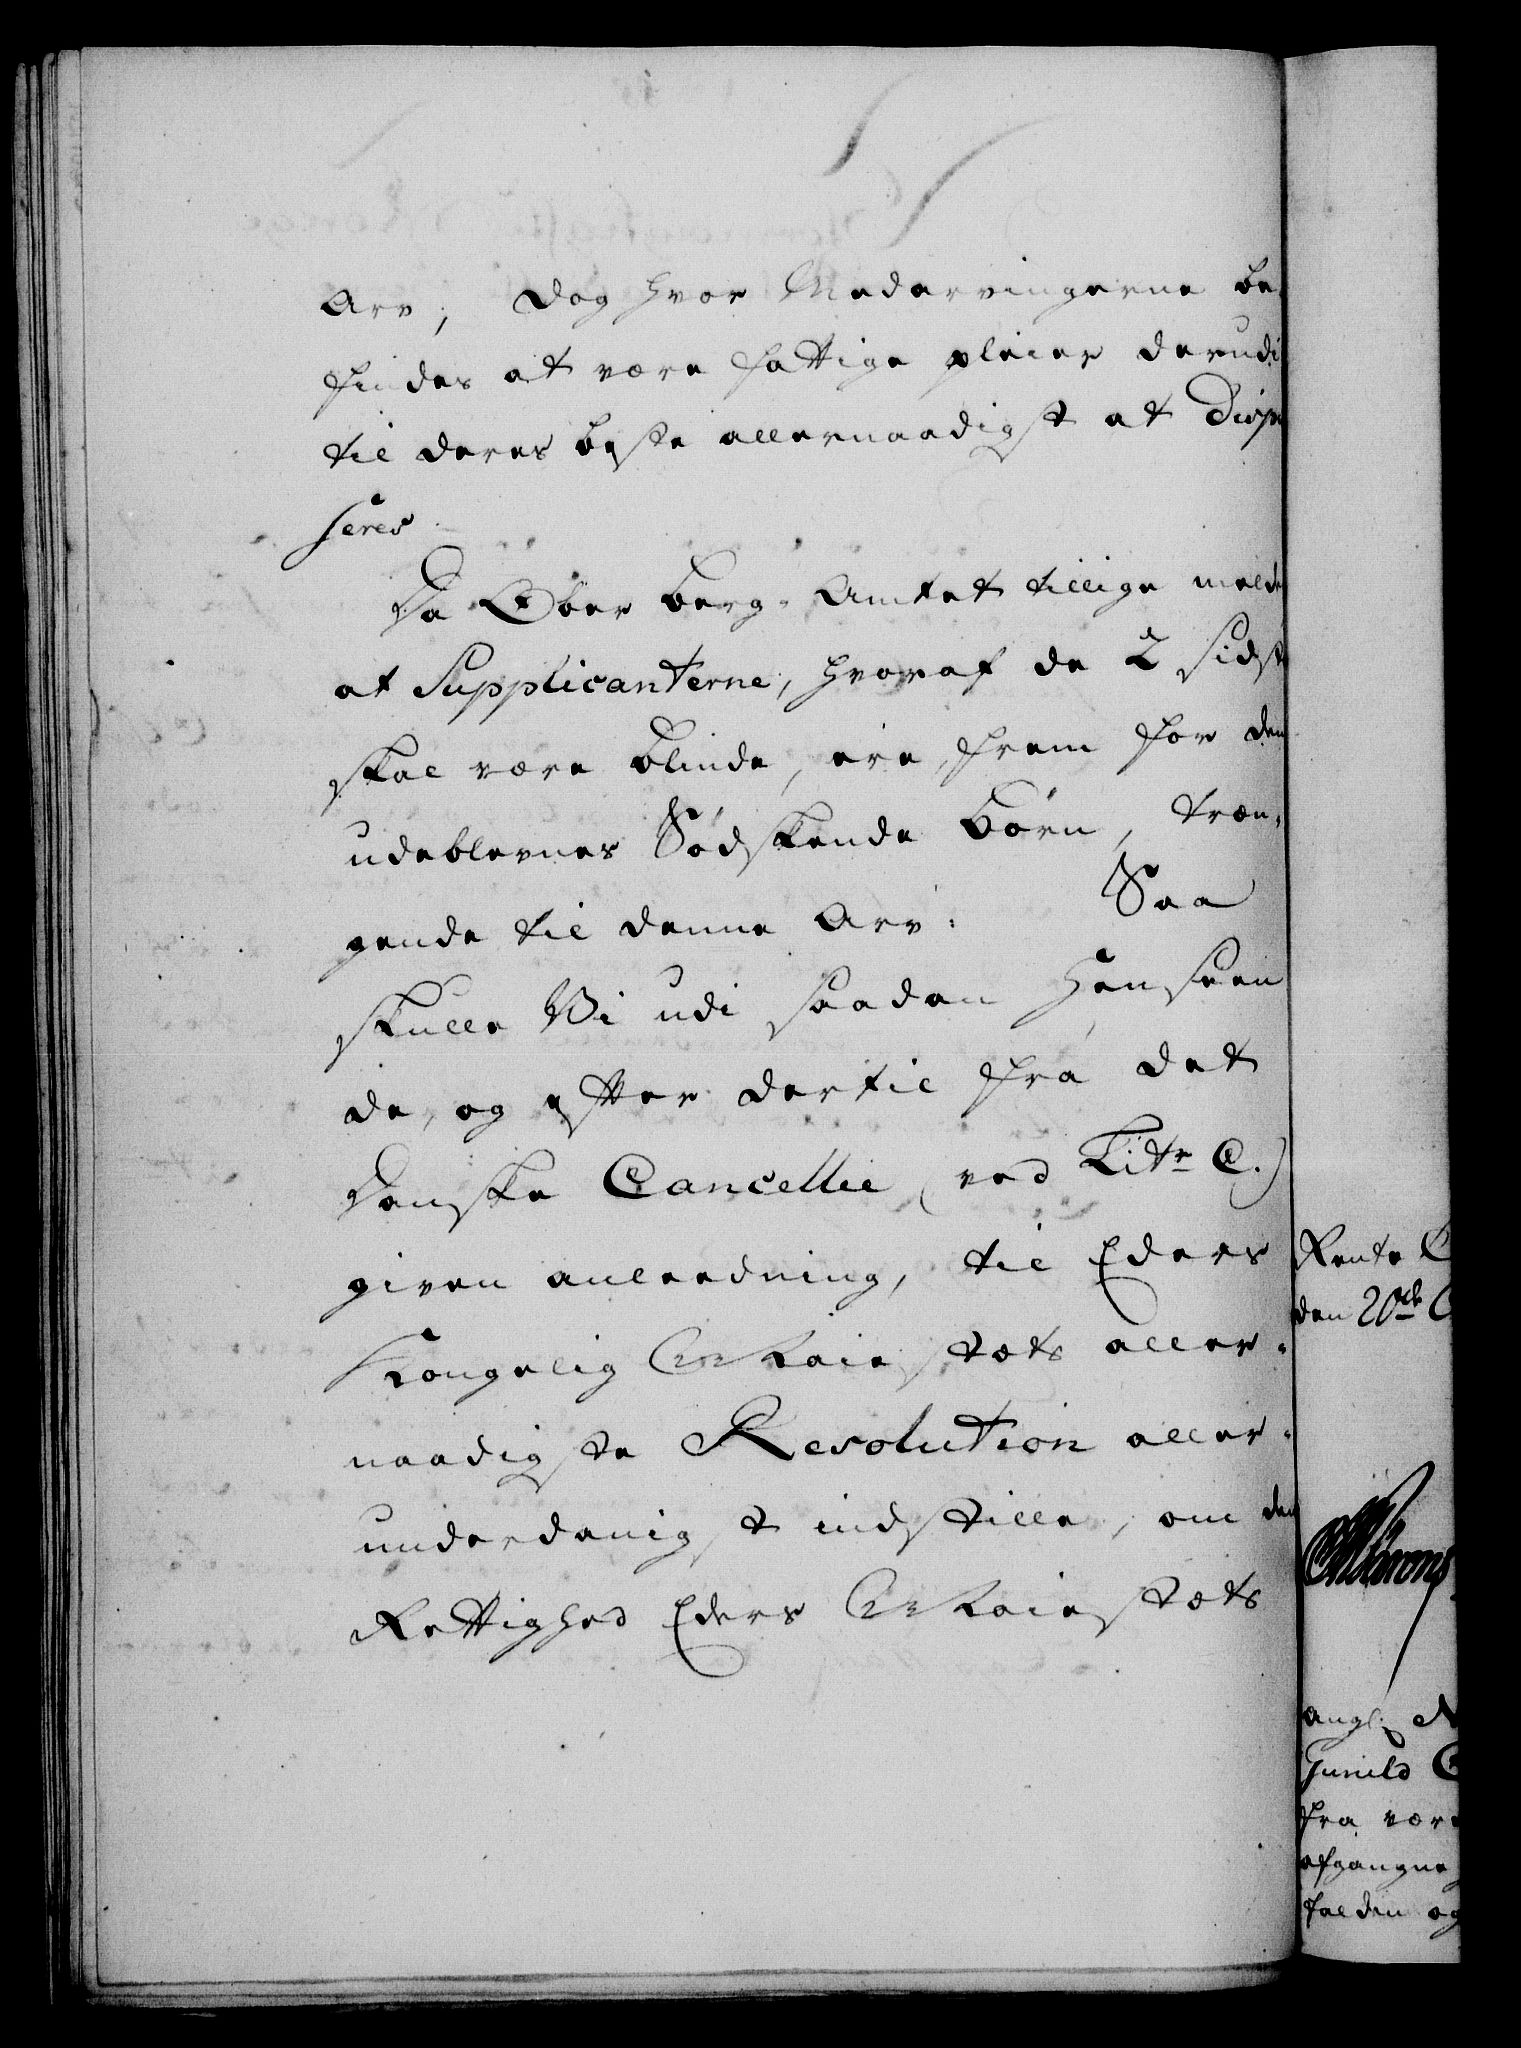 Arv; dog hvor Medarvingerne be-
findes at være fattige pleier derudi
til deres beste allernaadigst at dispen
seres.
Da Ober Berg-Amtet tillige melde
at Supplicanterne, hvoraf de 2 sidst
skal være blinde, ere, frem for den
udeblevnes Sødskende Børn, træn-
gende til denne Arv: Saa
skulle Vi udi saadan Henseen
de, og efter dertil fra det
Danske Cancellie (ved Litr C.)
given anleedning, til Eders
Kongelig Maiestæts aller-
naadigste Resolution aller-
underdanigst indstille, om den
Rettighed Eders Maiestæts
Rente C
den 20de
angl:
Gunild
fra vær
afgangne
talden og